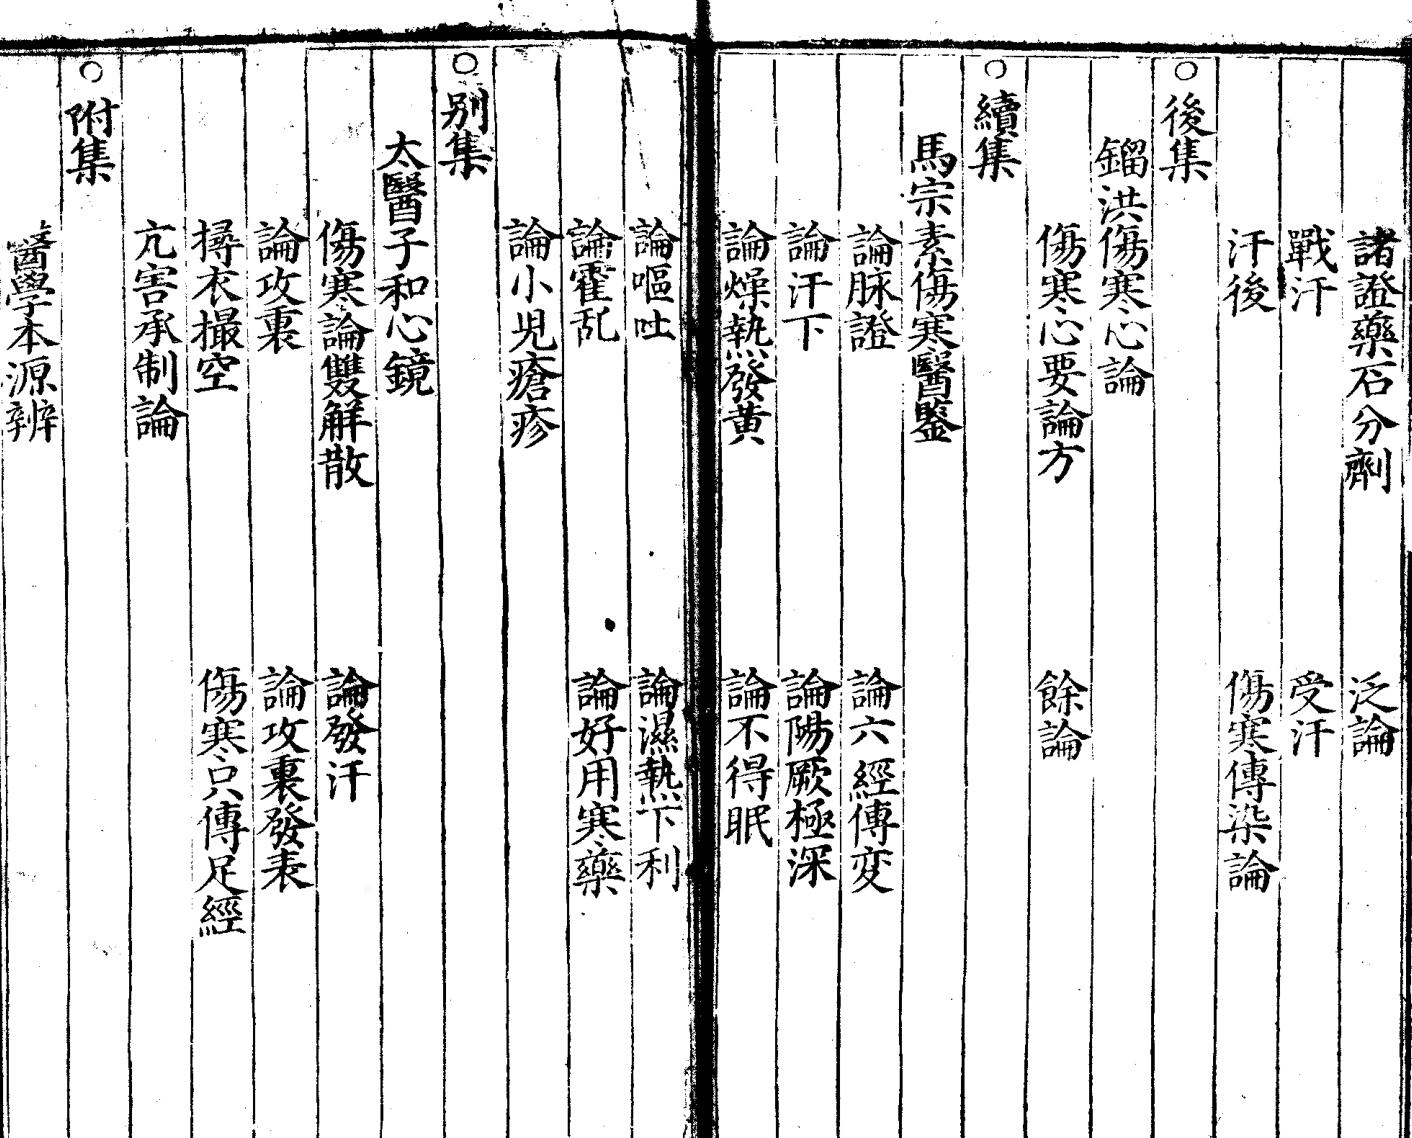 諸證藥石分劑　泛論
戰汗　受汗
汗後　傷寒傳染論
○後集
鎦洪傷寒心論
傷寒心要論方　餘論
○續集
馬宗素傷寒醫鑒
論脉證　論六經傳変
論汗下　論陽厥極深
論燥熱發黄　論不得眠
論嘔吐　論濕熱下利
論霍乱　論好用寒藥
論小児瘡疹
○别集
太醫子和心鏡
傷寒論雙解散　論發汗
論攻裏　論攻裏發表
撏衣撮空　傷寒只傳足經
亢害承制論
○附集
醫學本源辨